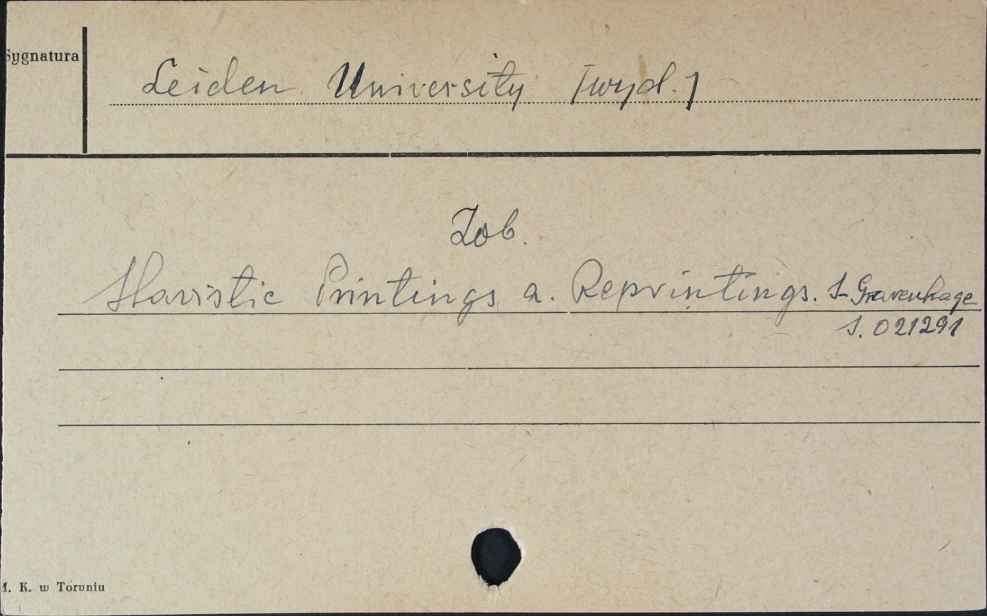 Sygnatura
Leiden University [wyd.]
Zob.
Slavistic Printings a. Reprintings. S-Gravenhage
S. 021291
M. K. w Toruniu